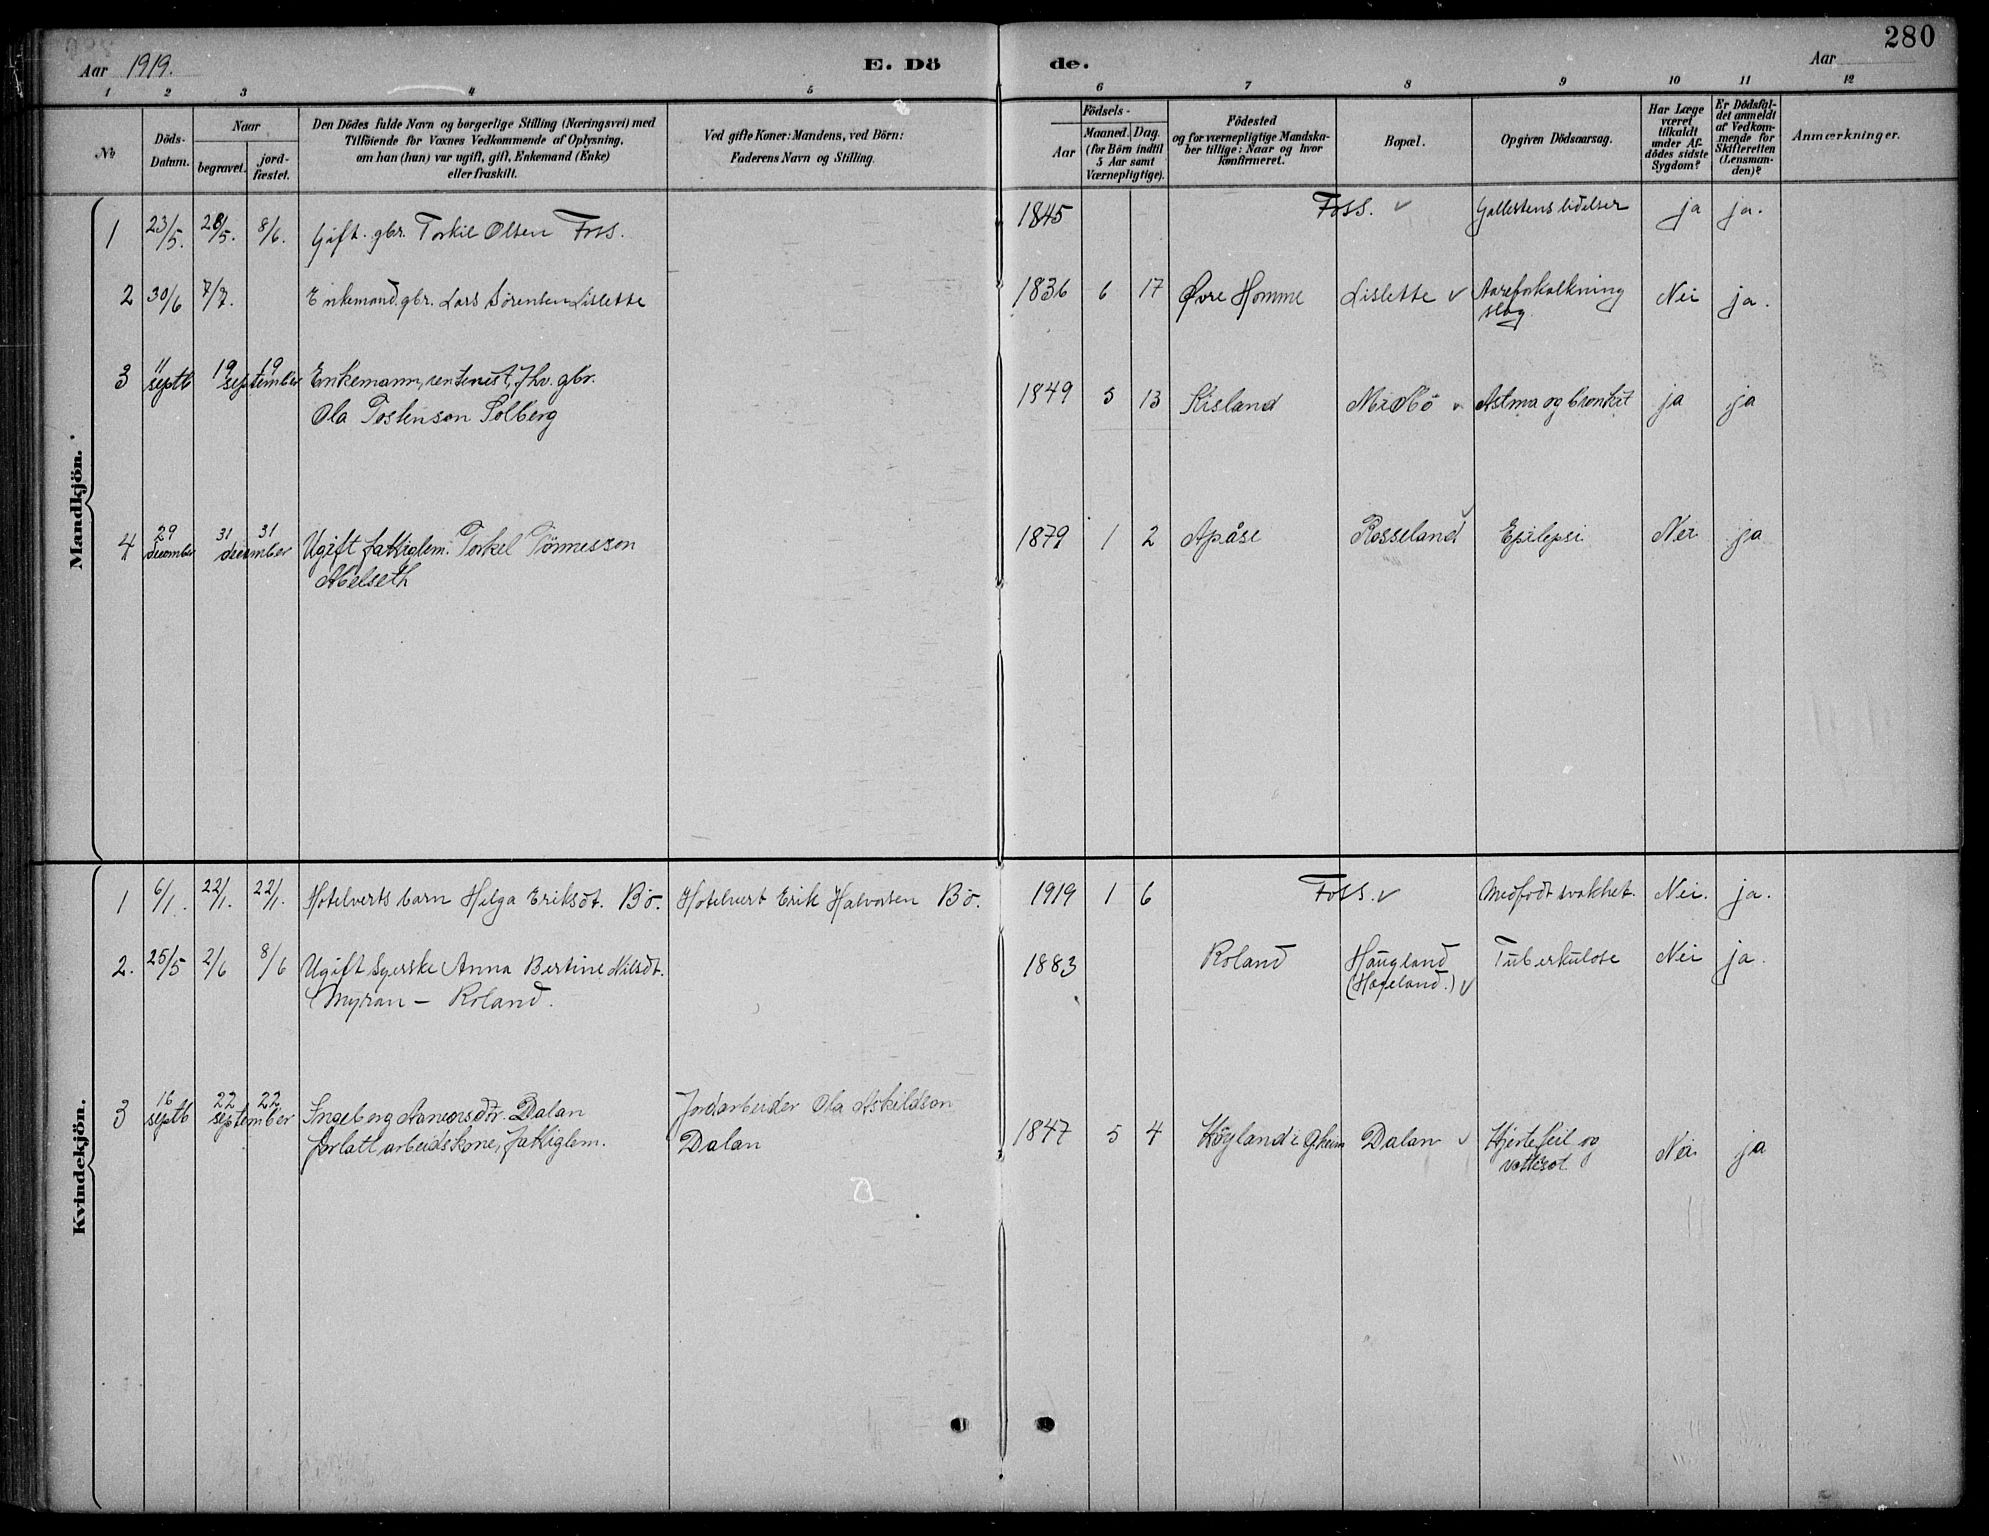 280
Aar 1919. E. Dö de. Aar
1 2 3 4 5 6 7 8 9 10 11 12
No
Döds-
Datum.
Naar
begravet.
jord-
fæstet.
Den Dödes fulde Navn og borgerlige Stilling (Næringsvei) med
Tilföiende for Voxnes Vedkommende af Oplysning,
om han (hun) var ugift, gift, Enkemand (Enke)
eller fraskilt.
Ved gifte Koner: Mandens, ved Börn:
Faderens Navn og Stilling.
Födsels-
Aar
Maaned. Dag.
(for Börn indtil
5 Aar samt
Værnepligtige).
Födested
og for værnepligtige Mandska-
ber tillige: Naar og hvor
konfirmeret.
Bopæl.
Opgiven Dödsaarsag.
Har Læge
været
tilkaldt
under Af-
dödes sidste
Sygdom?
Er Dödsfal-
det anmeldt
af Vedkom-
mende for
Skifteretten
(Lensman-
den)?
Anmærkninger.
Mandkjön.
1 23/5. 28/5. 8/6. Gift. gbr. Torkil Olsen Foss. 1845 Foss. ✓ Gallestenslidelser ja ja.
2 30/6 7/7. Enkemand. gbr. Lars Sörensen Lislette 1836 6 17 Øvre Homme Lislette ✓ Aareforkalkning Nei ja.
slag
3 11 septb 19 19 september Enkemann, rentenist, fhv. gbr.
Ola Tostenson Solberg 1849 5 13 Stisland Midbö ✓ Astma og bronkit ja ja
4 29 december 31 31 december Ugift fattiglem: Torkel Tönnesson
Abelseth 1879 1 2 Apåse Rosseland ✓ Epilepsi Nei ja
Kvindekjön.
1 6/1. 22/1. 22/1. Hotelverts barn Helga Eriksdt. Bö. Hotelvert Erik Halvorsen Bö. 1919 1 6 Foss. ✓ Medfödt svakhet. Nei. ja.
2. 25/5 2/6 8/6 Ugift syerske Anna Bertine Nilsdt. 1883 Roland Haugland Tuberkulose Nei ja.
Myran – Roland. (Hageland.) ✓
3 16 septb 22 22 september Ingeborg Aanensdtr. Dalan Jordarbeider Ola Askildson
forlatt arbeidskone, fattiglem. Dalan 1847 5 4 Höyland i Gheim Dalan ✓ Hjertefeil og Nei ja
vattersot